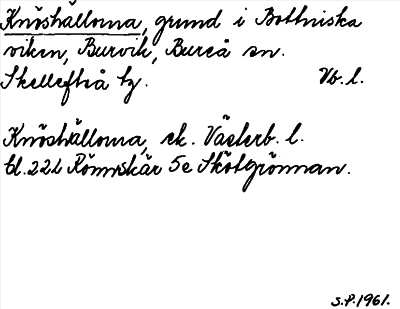 Knöshällorna, grund i Bottniska
viken, Burvik, Bureå sn.
Skellefteå tg. Vb. l.
Knöshällorna, ek. Västerb. l.
bl. 222 Rönnskär 5e Skötgrönnan.
S.P. 1961.